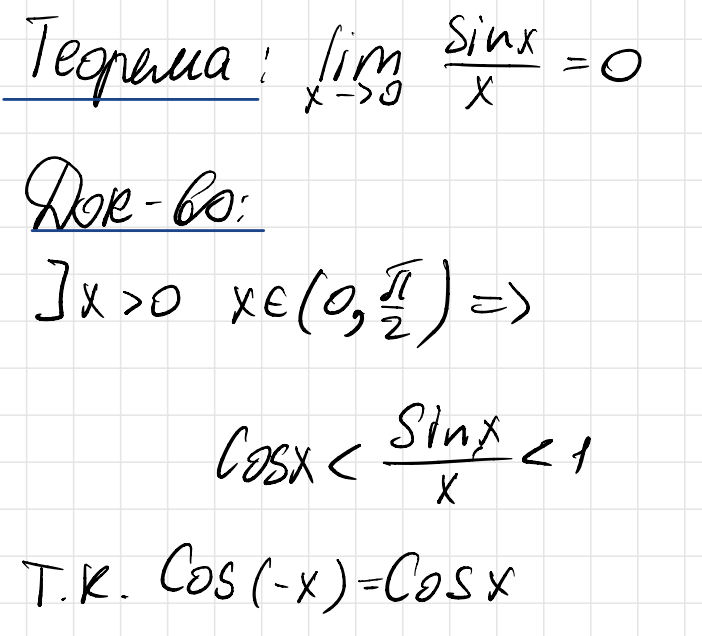 Теорема: lim x->0 sinx/x = 0
Док-во:
]x>0 x∈(0, π/2) =>
Cosx < Sinx/x < 1
Т.к. Cos(-x)=Cosx